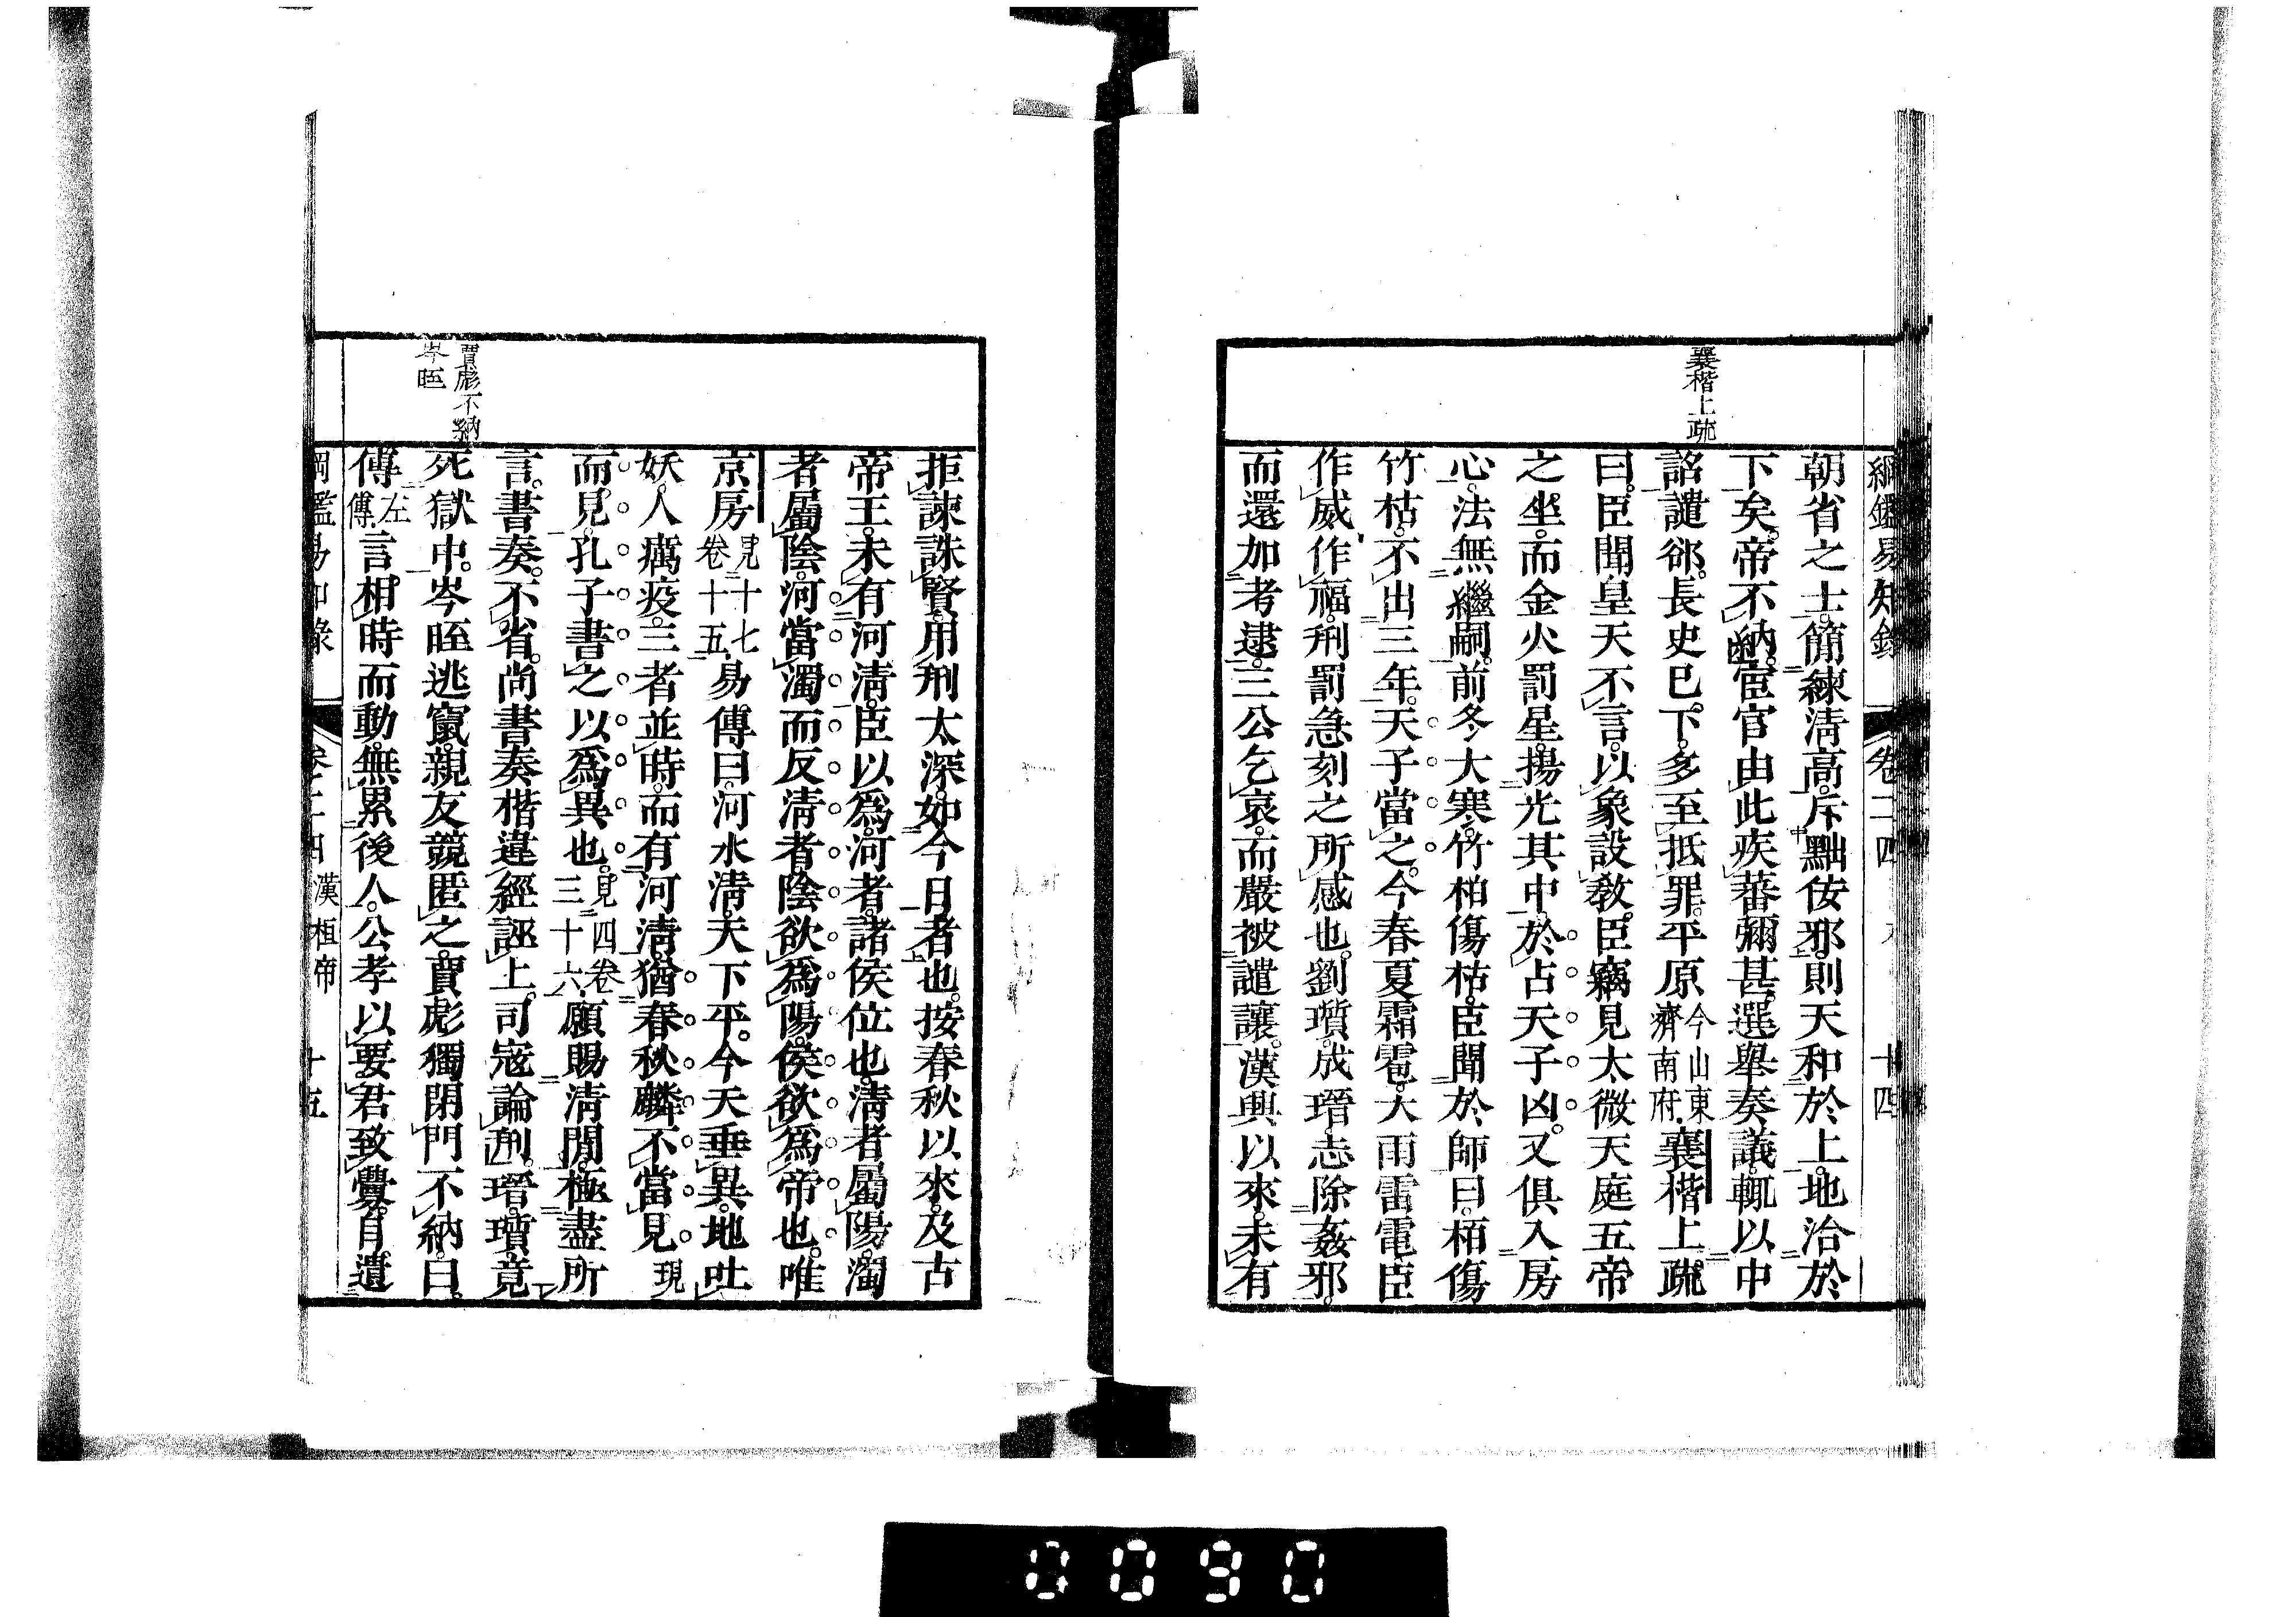 綱鑑易知錄 卷二四 十四
襄楷上疏
朝省之士。簡練淸高。斥黜佞邪。則天和於上。地洽於
下矣。帝不納。宦官由此疾蕃彌甚。選舉奏議。輒以中
詔譴郤。長史巳下。多至抵罪。平原今山東濟南府。襄楷上疏
曰。臣聞皇天不言。以象設敎。臣竊見太微天庭五帝
之坐。而金火罰星。揚光其中。於占天子凶。又俱入房
心。法無繼嗣。前冬大寒。竹柏傷枯。臣聞於師曰。栢傷
竹枯。不出三年。天子當之。今春夏霜雹。大雨雷電。臣
作威作福。刑罰急刻之所感也。劉瓆。成瑨。志除姦邪。
而還加考逮。三公乞哀。而嚴被譴讓。漢興以來。未有
拒諫誅賢。用刑太深。如今日者也。按春秋以來。及古
帝王。未有河淸。臣以爲。河者。諸侯位也。淸者屬陽。濁
者屬陰。河當濁而反淸者。陰欲爲陽。侯欲爲帝也。唯
京房見十七卷十五。易傳曰。河水淸。天下平。今天垂異。地吐
妖。人癘疫。三者並時。而有河淸。猶春秋麟不當見現
而見。孔子書之以爲異也。見四卷三十六。願賜淸閒。極盡所
言。書奏。不省。尚書奏楷違經誣上。司寇論刑。瑨瓆竟
死獄中。岑晊逃竄。親友競匿之。賈彪獨閉門不納。曰。
傳左傳。言。相時而動。無累後人。公孝以要君致釁。自遺
賈彪不納
岑晊
綱鑑易知錄 卷二四 漢桓帝 十五
0090